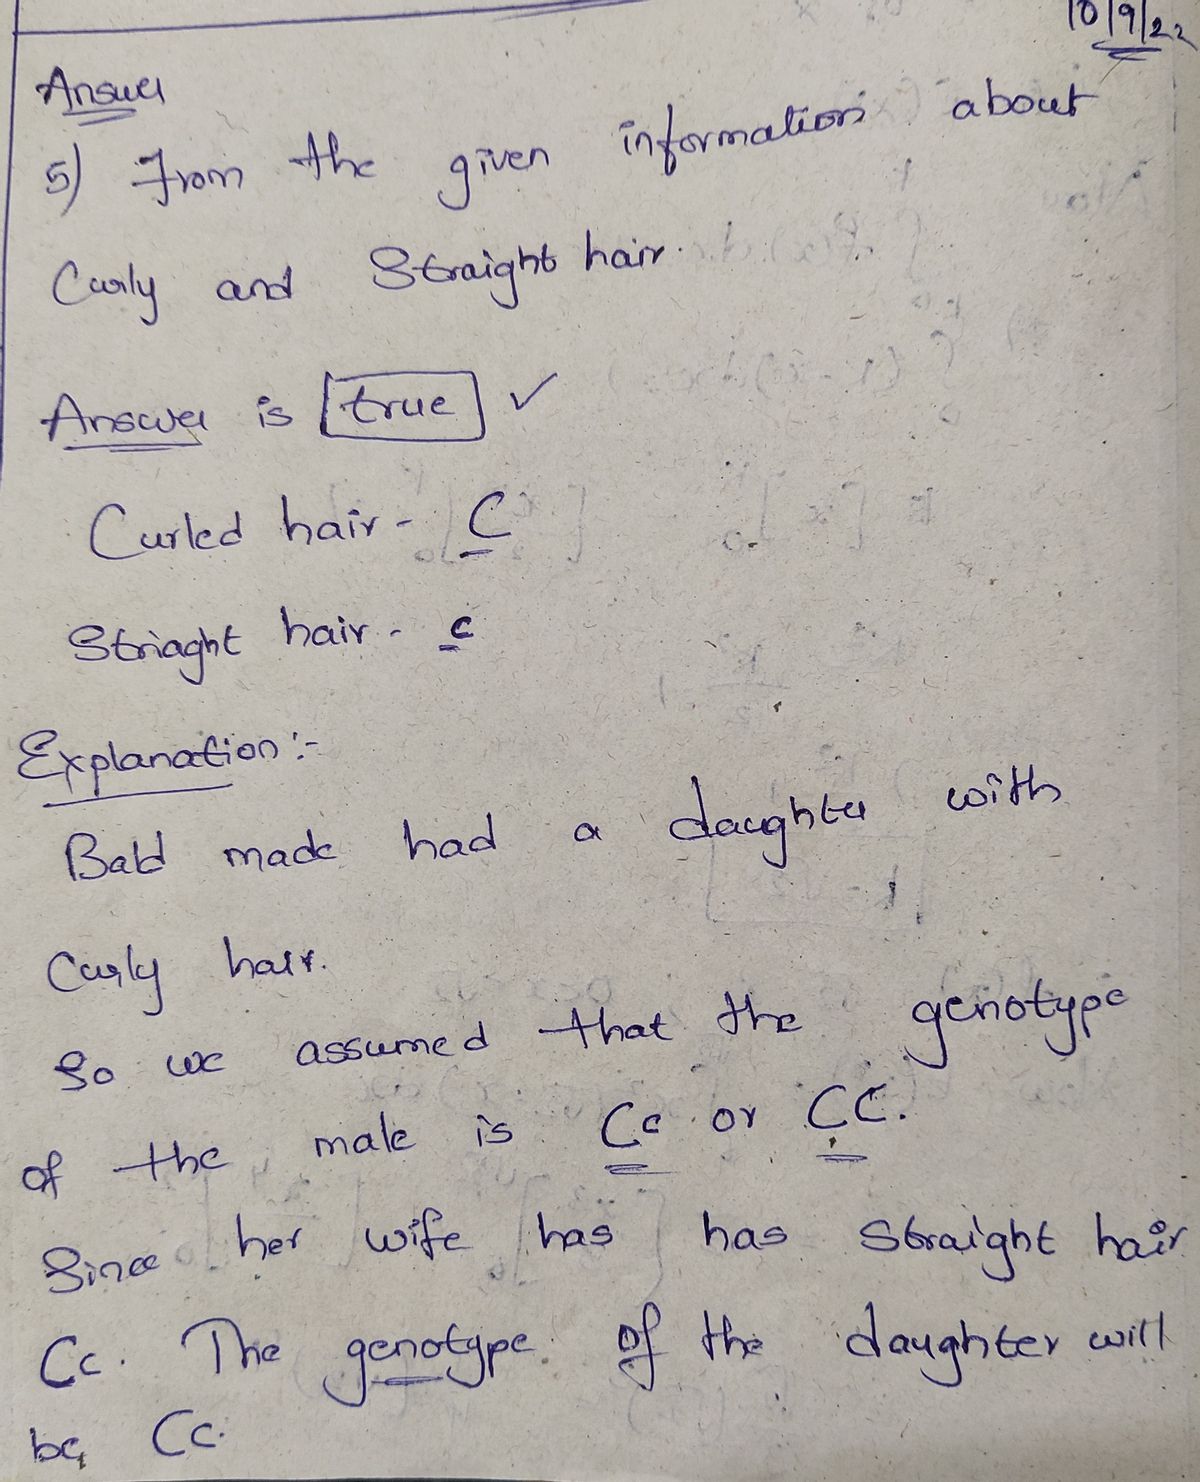 10/9/22
Answer
5) From the given information about
Curly and Straight hair.
Answer is true ✓
Curled hair - C
Striaght hair - c
Explanation :-
Bald made had a daughter with
Curly hair.
So we assumed that the genotype
of the male is Cc or CC.
Since her wife has has Straight hair
Cc. The genotype of the daughter will
be Cc.